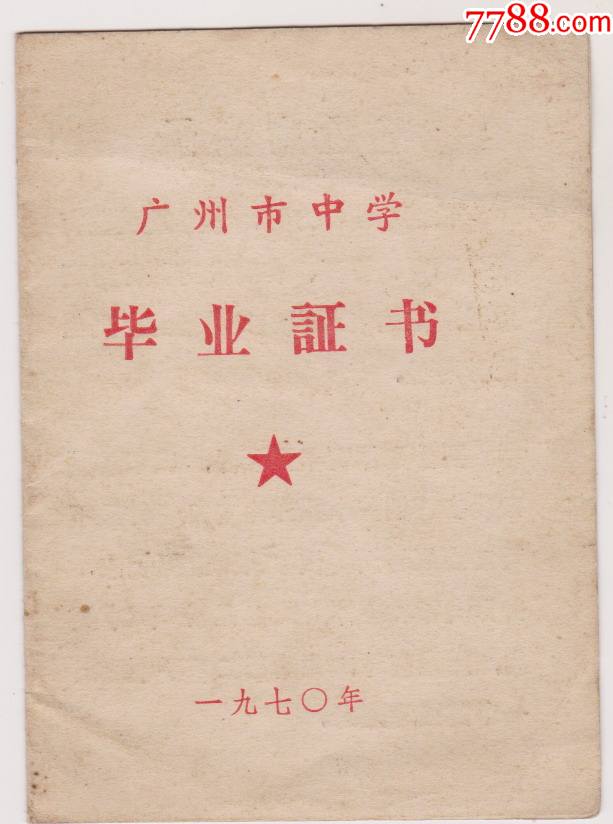 7788.com
广州市中学
毕业証书
一九七〇年